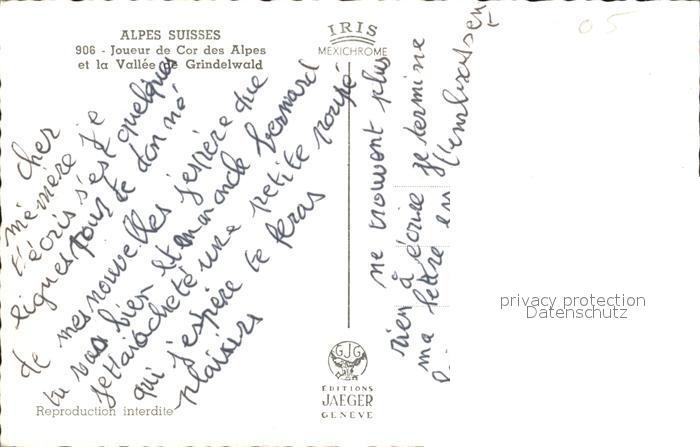 ALPES SUISSES
906 - Joueur de Cor des Alpes
et la Vallée de Grindelwald
IRIS
MEXICHROME
05
cher
mémère je
t'écris s'est quelques
lignes pour te don né
de mes nouvelles j'espère que
tu vas bien et mon oncle bernard
jettai acheté une petite poupé
qui j'espère te feras
plaisirs
ne trouvant plus
rien à écrire je termine
ma lettre en t'embrassen
privacy protection
Datenschutz
GJG
EDITIONS
JAEGER
GENÈVE
Reproduction interdite